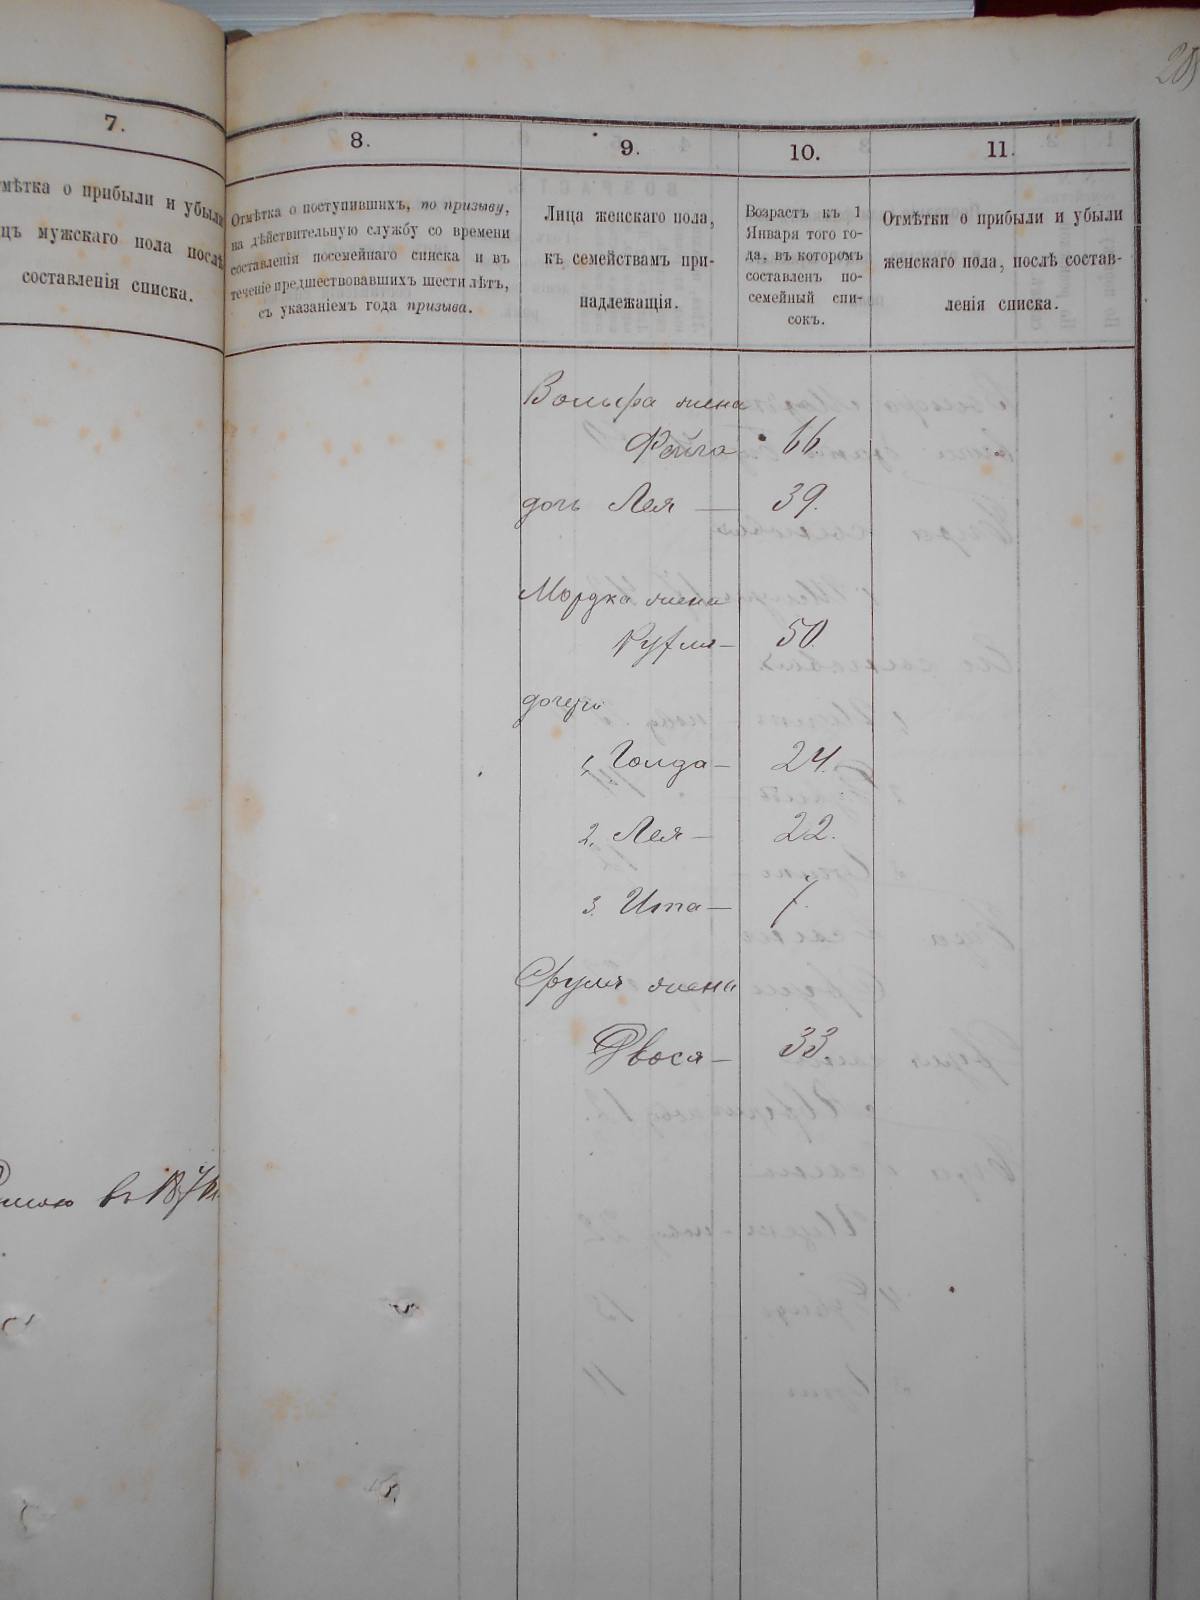 7.
8.
9.
10.
11.
мѣтка о прибыли и убыли
цъ мужскаго пола послѣ
составленія списка.
Отмѣтка о поступившихъ, по призыву,
на дѣйствительную службу со времени
составленія посемейнаго списка и въ
теченіе предшествовавшихъ шести лѣтъ,
съ указаніемъ года призыва.
Лица женскаго пола,
къ семействамъ при-
надлежащія.
Возрастъ къ 1
Января того го-
да, въ которомъ
составленъ по-
семейный спи-
сокъ.
Отмѣтки о прибыли и убыли
женскаго пола, послѣ состав-
ленія списка.
Вольфа жена
Фейга 66.
дочь Лея — 39.
Мордка жена
50.
дочери
1, Голда — 24.
2, Лея — 22.
3. Ита — 7.
Сруля жена
Двося — 33.
въ